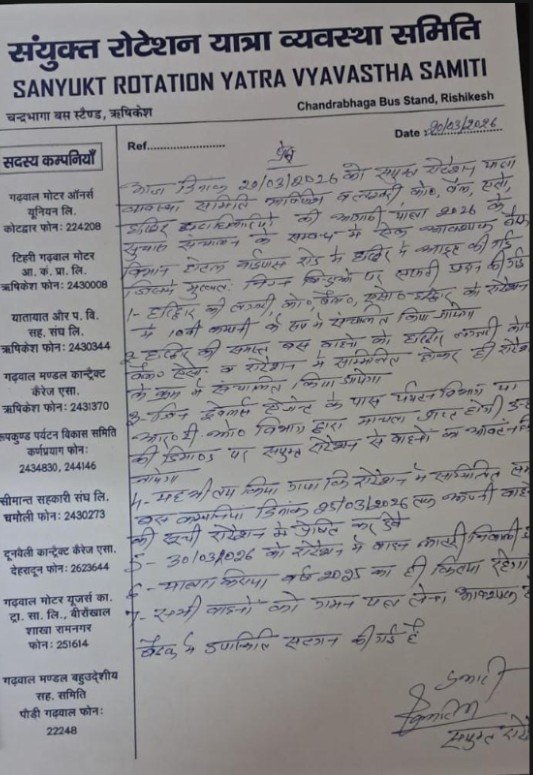 संयुक्त रोटेशन यात्रा व्यवस्था समिति
SANYUKT ROTATION YATRA VYAVASTHA SAMITI
चन्द्रभागा बस स्टैण्ड, ऋषिकेश
Chandrabhaga Bus Stand, Rishikesh
Ref....................
Date : 20/03/2026
सदस्य कम्पनियाँ
गढ़वाल मोटर ऑनर्स
यूनियन लि.
कोटद्वार फोन : 224208
टिहरी गढ़वाल मोटर
आ. कं. प्रा. लि.
ऋषिकेश फोन : 2430008
यातायात और प. वि.
सह. संघ लि.
ऋषिकेश फोन: 2430344
गढ़वाल मण्डल कान्ट्रैक्ट
कैरेज एसा.
ऋषिकेश फोन: 2431370
रूपकुण्ड पर्यटन विकास समिति
कर्णप्रयाग फोन:
2434830, 244146
सीमान्त सहकारी संघ लि.
चमोली फोन: 2430273
दूनवेली कान्ट्रैक्ट कैरेज एसा.
देहरादून फोन: 2623644
गढ़वाल मोटर यूजर्स का.
ट्रा. सा. लि., बीरोंखाल
शाखा रामनगर
फोन: 251614
गढ़वाल मण्डल बहुउद्देशीय
सह. समिति
पौड़ी गढ़वाल फोन:
22248
आज दिनांक 20/03/2026 को संयुक्त रोटेशन यात्रा
व्यवस्था समिति
हरिद्वार पदाधिकारियों की आगामी यात्रा 2026 के
सुचारू संचालन के सम्बन्ध में एक आवश्यक बैठक
होटल बाईपास रोड में हरिद्वार में आहूत की गई
जिसमें मुख्यतः निम्न बिन्दुओं पर सहमति प्रदान की गई
1- हरिद्वार की
में 10वी कम्पनी के रूप में संचालित किया जायेगा
2- हरिद्वार की समस्त बस वाहनों को हरिद्वार
व रोटेशन में सम्मिलित होकर ही रोटेशन
के क्रम में संचालित किया जायेगा
3- जिन ट्रेवल्स एजेन्ट के पास पर्यटन विभाग या
विभाग द्वारा मान्यता प्राप्त होगी
की डिमाण्ड पर संयुक्त रोटेशन से वाहनों का आवंटन किया
जायेगा
4- यह भी तय किया गया कि रोटेशन में सम्मिलित समस्त
बस कम्पनियां दिनांक 25/03/2026 तक अपनी वाहनों
की सूची रोटेशन में प्रेषित कर देवें
5- 30/03/2026 को रोटेशन में वाहन लाटरी निकाली
6- यात्रा किराया वर्ष 2025 का ही किराया रहेगा
7- सभी वाहनों को गमन पत्र लेना आवश्यक है
बैठक में उपस्थिति संलग्न की गई है
प्रभारी
संयुक्त रोटेशन